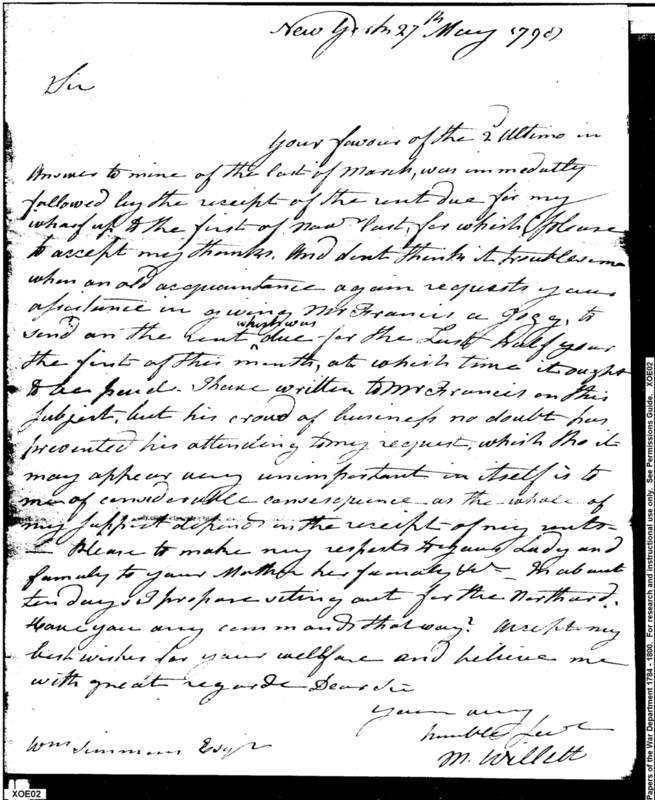 New York 27th May 1798
Sir
Your favour of the 2d Ultimo in
Answer to mine of the last of March, was immedatly
followed by the receipt of the rent due for my
wharf up to the first of Novr last, for which (please
to accept my thanks. And dont think it troublesome
when an old acquaintance again requests your
assistance in giving Mr Francis a Jogg, to
send on the rent which was due for the Last half year
the first of this month, at which time it ought
to be paid. I have written to Mr Francis on this
subject, but his croud of business no doubt has
prevented his attending to my request, which tho it
may appear very unimportant in itself is to
me of considerable consequence as the whole of
my support depends on the receipt of my rents
Please to make my respects to your Lady and
famaly to your Mother her famaly &c - In about
ten days I propose seting out for the Northard.
Have you any commands that way? Accept my
best wishes for your wellfare and believe me
with great regard Dear Sir
Your very
humble Servt
M. Willett
Wm Simmons Esqr
XOE02
Papers of the War Department 1784 - 1800. For research and instructional use only. See Permissions Guide. XOE02